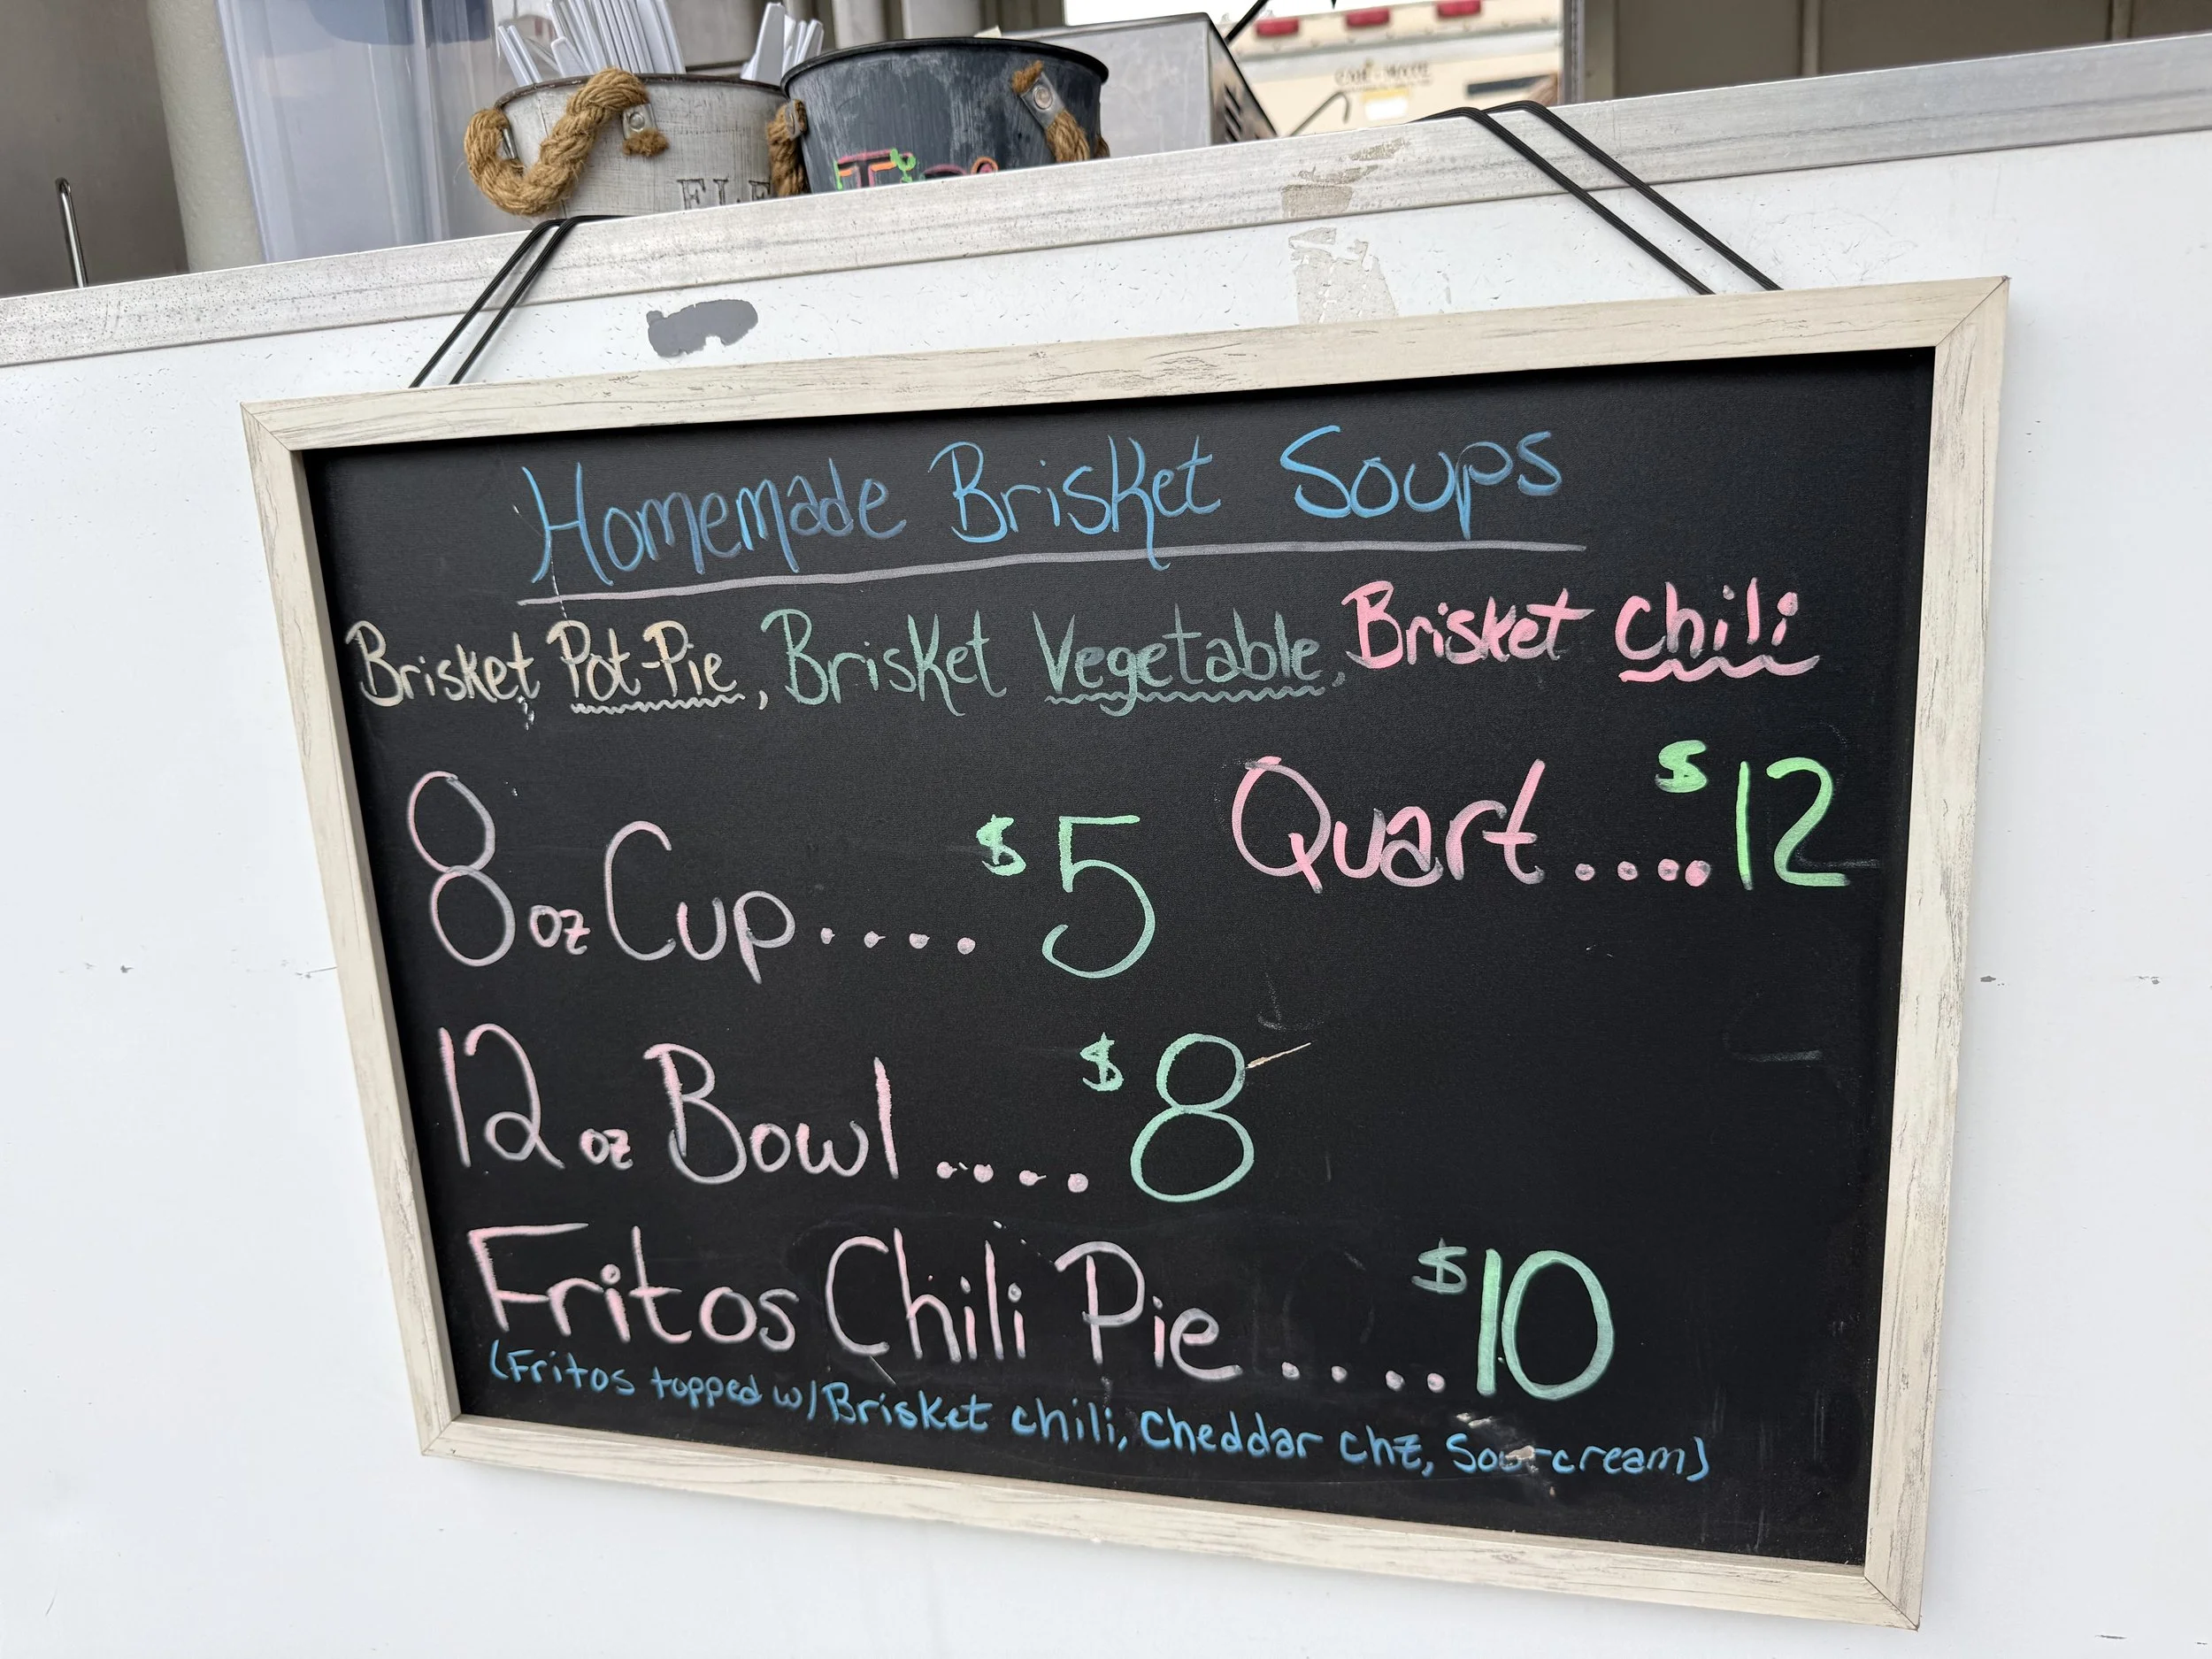 Homemade Brisket Soups
Brisket Pot-Pie, Brisket Vegetable, Brisket Chili
8 oz Cup.... $5
Quart.... $12
12 oz Bowl.... $8
Fritos Chili Pie.... $10
(Fritos topped w/Brisket chili, Cheddar chz, Sour cream)